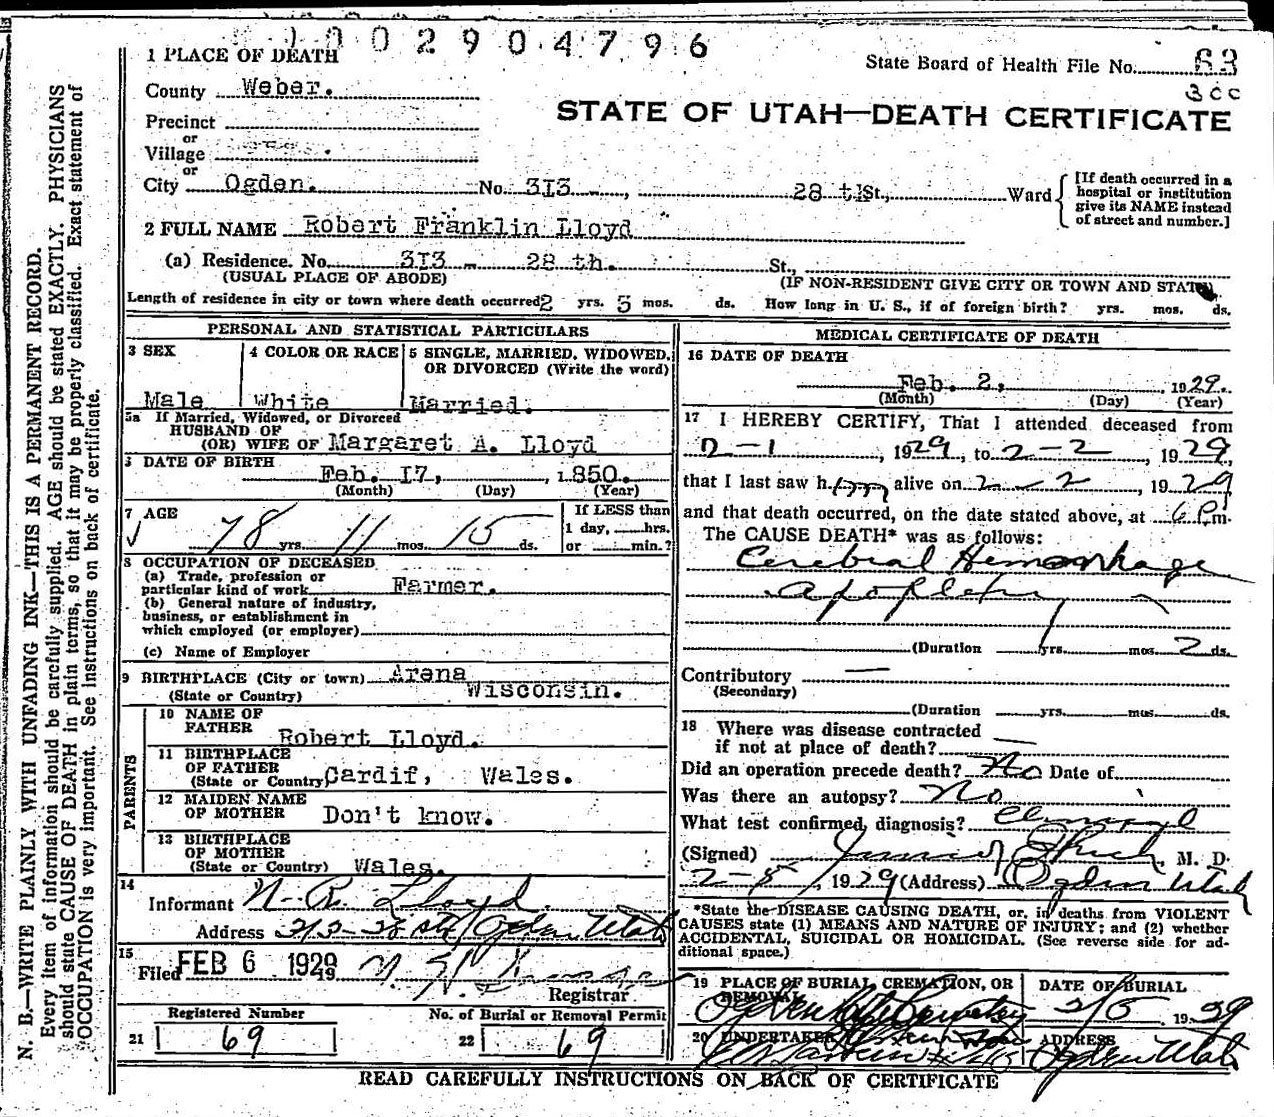 N. B.—WRITE PLAINLY WITH UNFADING INK—THIS IS A PERMANENT RECORD.
Every item of information should be carefully supplied. AGE should be stated EXACTLY. PHYSICIANS
should state CAUSE OF DEATH in plain terms, so that it may be properly classified. Exact statement of
OCCUPATION is very important. See instructions on back of certificate.
0002904796
1 PLACE OF DEATH
State Board of Health File No. 63
County Weber.
STATE OF UTAH—DEATH CERTIFICATE
Precinct
or
Village
or
City Ogden. No. 313 28 th St., Ward
[If death occurred in a
hospital or institution
give its NAME instead
of street and number.]
2 FULL NAME Robert Franklin Lloyd
(a) Residence. No. 313 - 28 th. St.,
(USUAL PLACE OF ABODE) (IF NON-RESIDENT GIVE CITY OR TOWN AND STATE)
Length of residence in city or town where death occurred 2 yrs. 5 mos. ds. How long in U. S., if of foreign birth? yrs. mos. ds.
PERSONAL AND STATISTICAL PARTICULARS
3 SEX 4 COLOR OR RACE 5 SINGLE, MARRIED, WIDOWED,
OR DIVORCED (Write the word)
Male White Married.
5a If Married, Widowed, or Divorced
HUSBAND OF
(OR) WIFE OF Margaret A. Lloyd
DATE OF BIRTH
Feb. 17, 1850.
(Month) (Day) (Year)
7 AGE
78 yrs. 11 mos. 15 ds.
If LESS than
1 day, hrs.
or min.?
8 OCCUPATION OF DECEASED
(a) Trade, profession or
particular kind of work Farmer.
(b) General nature of industry,
business, or establishment in
which employed (or employer)
(c) Name of Employer
9 BIRTHPLACE (City or town) Arena
(State or Country) Wisconsin.
PARENTS
10 NAME OF
FATHER Robert Lloyd.
11 BIRTHPLACE
OF FATHER
(State or Country) Cardif, Wales.
12 MAIDEN NAME
OF MOTHER Don't know.
13 BIRTHPLACE
OF MOTHER
(State or Country) Wales.
14
Informant N. R. Lloyd.
Address 313-28 St/ Ogden Utah
15
Filed FEB 6 1929
Registrar
Registered Number No. of Burial or Removal Permit
21 69 22 69
MEDICAL CERTIFICATE OF DEATH
16 DATE OF DEATH
Feb. 2, 1929.
(Month) (Day) (Year)
17 I HEREBY CERTIFY, That I attended deceased from
2-1, 1929, to 2-2, 1929,
that I last saw him alive on 2-2, 1929
and that death occurred, on the date stated above, at 6 P.m.
The CAUSE DEATH* was as follows:
Cerebral Hemorrhage
Apoplexy
(Duration yrs. mos. 2 ds.
Contributory —
(Secondary)
(Duration yrs. mos. ds.
18 Where was disease contracted
if not at place of death? —
Did an operation precede death? No Date of
Was there an autopsy? No
What test confirmed diagnosis? Clinical
(Signed) M. D.
2-5, 1929 (Address) Ogden Utah
*State the DISEASE CAUSING DEATH, or, in deaths from VIOLENT
CAUSES state (1) MEANS AND NATURE OF INJURY; and (2) whether
ACCIDENTAL, SUICIDAL OR HOMICIDAL. (See reverse side for ad-
ditional space.)
19 PLACE OF BURIAL, CREMATION, OR
REMOVAL
Ogden City Cemetery
DATE OF BURIAL
2/5 1929
20 UNDERTAKER ADDRESS
Ogden Utah
READ CAREFULLY INSTRUCTIONS ON BACK OF CERTIFICATE